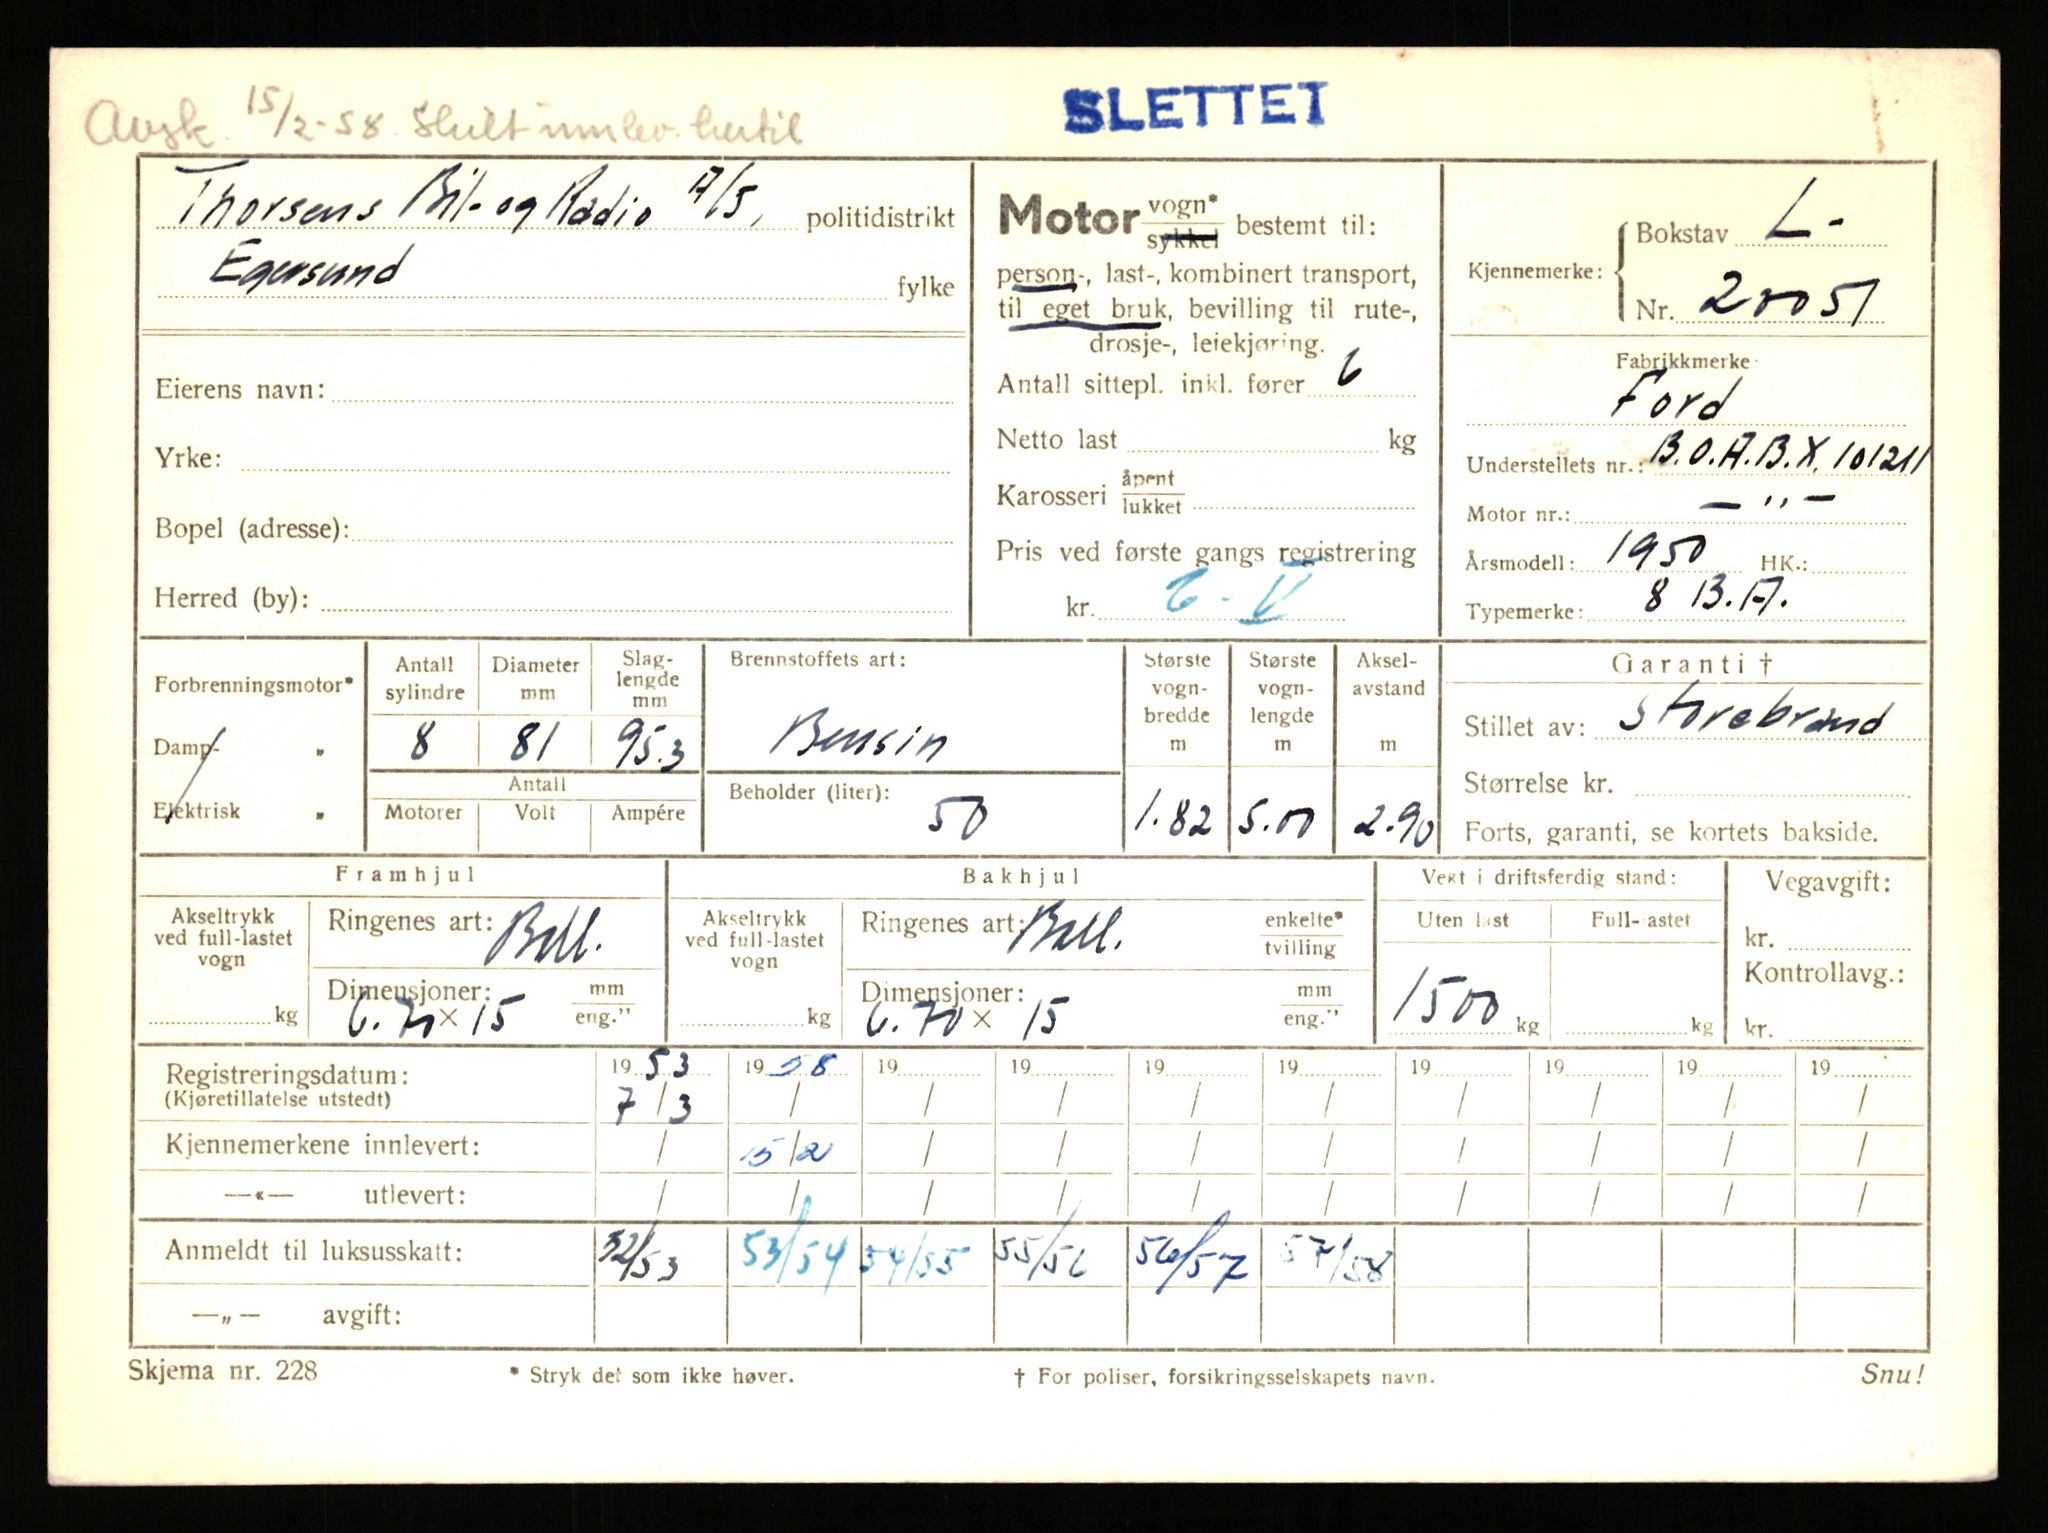 Avsk. 15/2-58 Skilt innlev. hertil
SLETTET
Thorsens Bil- og Radio A/S, politidistrikt
Egersund fylke
Eierens navn:
Yrke:
Bopel (adresse):
Herred (by):
Motor vogn* sykkel bestemt til:
person-, last-, kombinert transport,
til eget bruk, bevilling til rute-,
drosje-, leiekjøring.
Antall sittepl. inkl. fører 6
Netto last kg
Karosseri åpent lukket
Pris ved første gangs registrering
kr. 6-V
Kjennemerke: Bokstav L-
Nr. 20051
Fabrikkmerke
Ford
Understellets nr.: B.O.A.B.X. 101211
Motor nr.: — ,, —
Årsmodell: 1950 HK.:
Typemerke: 8 B.A.
Forbrenningsmotor*
Damp- „
Elektrisk „
Antall sylindre 8
Diameter mm 81
Slag-lengde mm 95.3
Antall
Motorer Volt Ampére
Brennstoffets art:
Bensin
Beholder (liter): 50
Største vogn-bredde m 1.82
Største vogn-lengde m 5.00
Aksel-avstand m 2.90
Garanti †
Stillet av: Storebrand
Størrelse kr.
Forts, garanti, se kortets bakside.
Framhjul
Akseltrykk ved full-lastet vogn kg
Ringenes art: Ball.
Dimensjoner: mm eng."
6.70 × 15
Bakhjul
Akseltrykk ved full-lastet vogn kg
Ringenes art: Ball. enkelte* tvilling
Dimensjoner: mm eng."
6.70 × 15
Vekt i driftsferdig stand:
Uten last Full-lastet
1500 kg kg
Vegavgift:
kr.
Kontrollavg.:
kr.
Registreringsdatum: 1953 1958 19 19 19 19 19 19 19 19
(Kjøretillatelse utstedt) 7/3 / / / / / / / / /
Kjennemerkene innlevert: / 15/2 / / / / / / / /
—«— utlevert: / / / / / / / / / /
Anmeldt til luksusskatt: 52/53 53/54 54/55 55/56 56/57 57/58
—„— avgift:
Skjema nr. 228 * Stryk det som ikke høver. † For poliser, forsikringsselskapets navn. Snu!